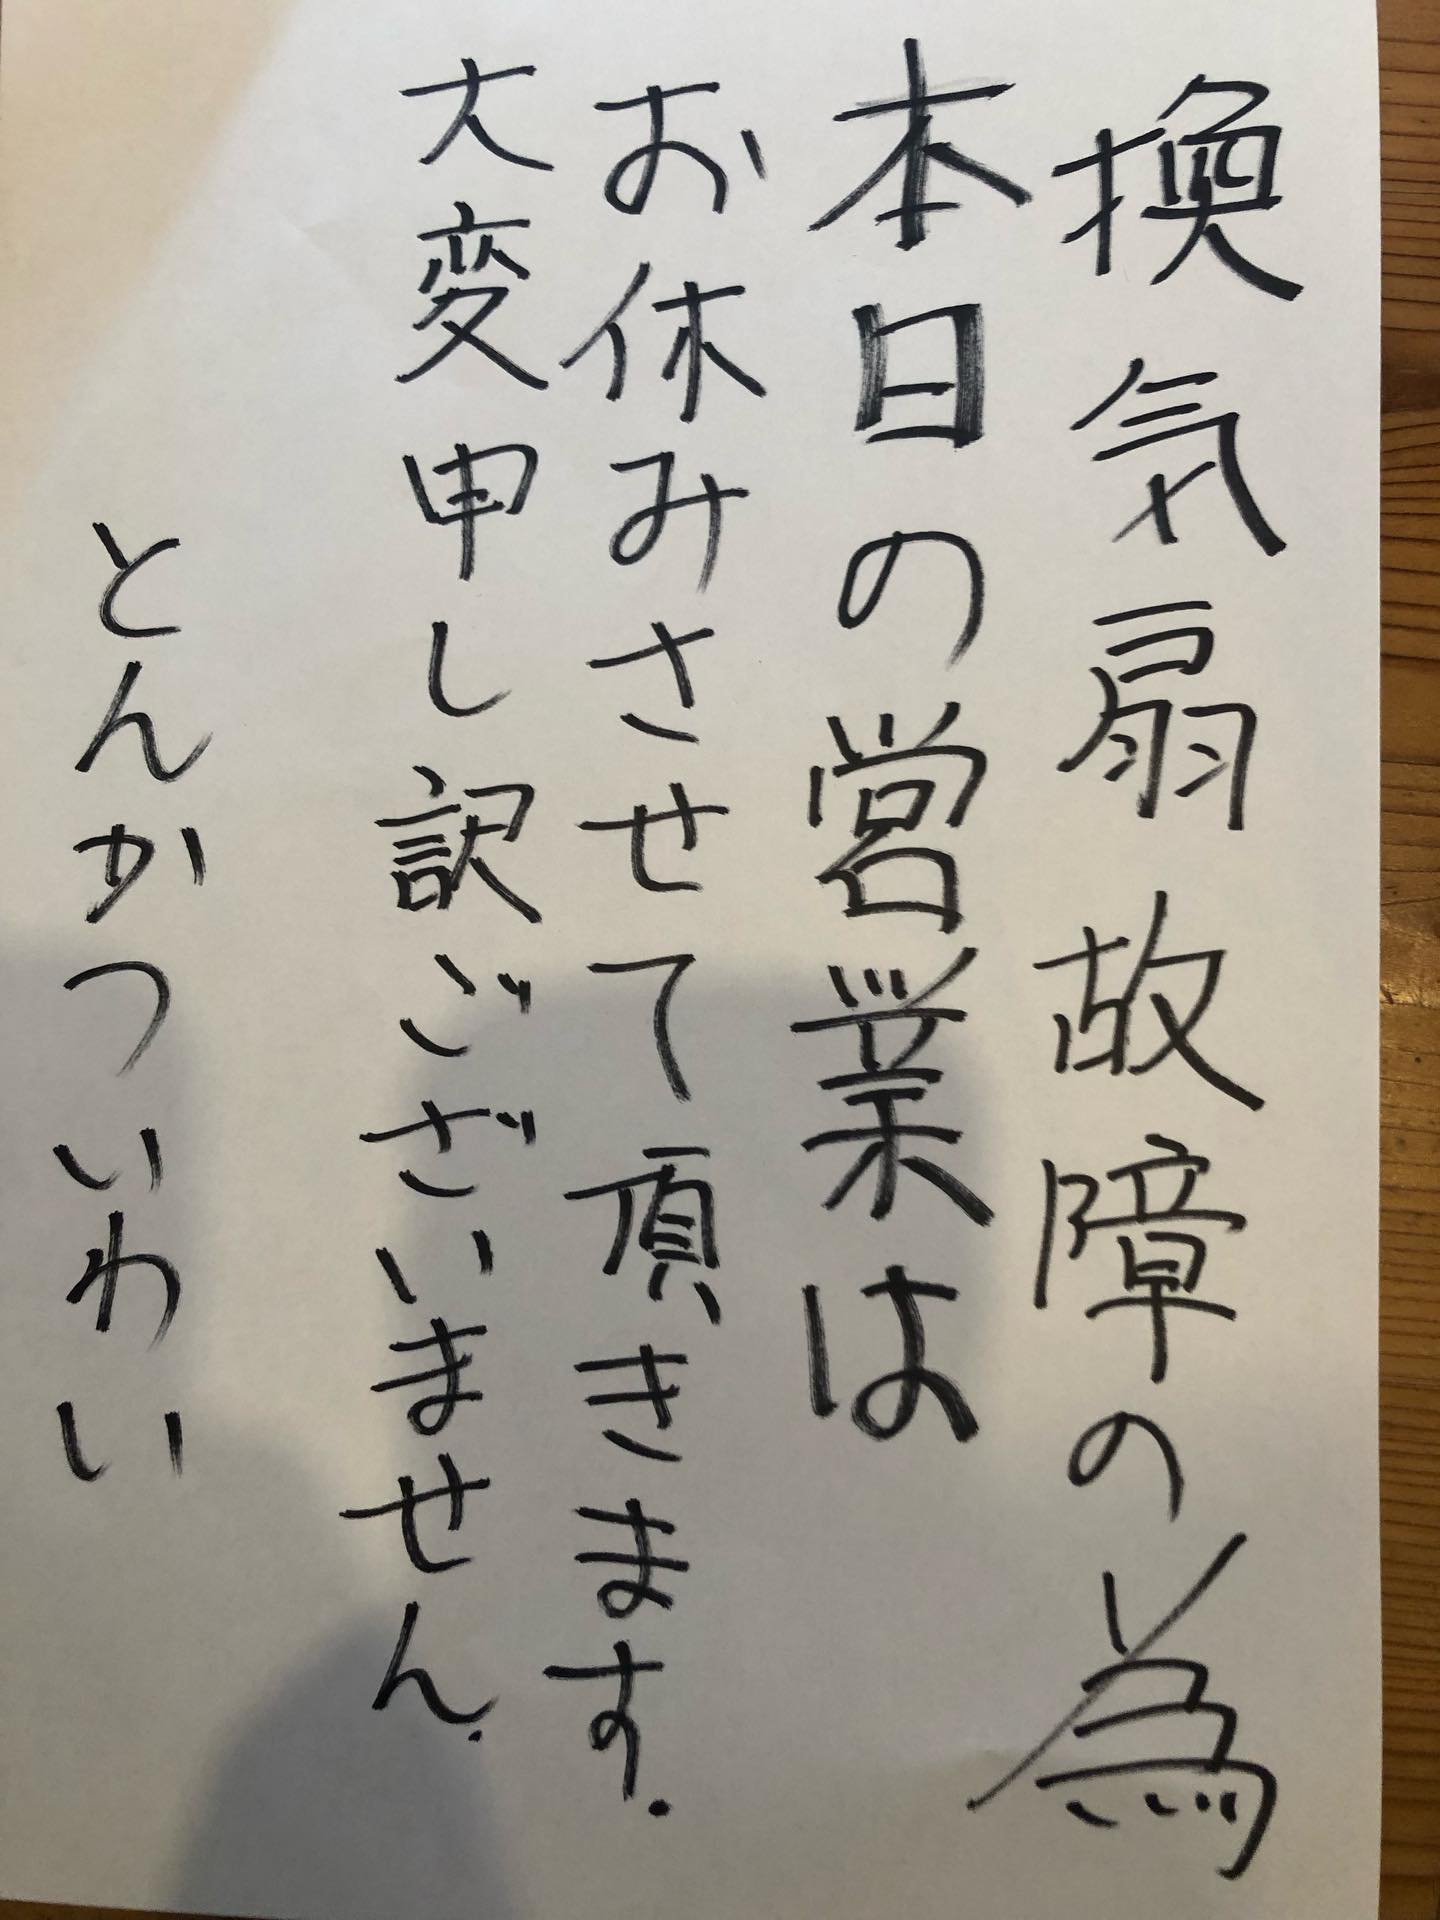 換気扇故障の為
本日の営業は
お休みさせて頂きます.
大変申し訳ございません.
とんかついわい